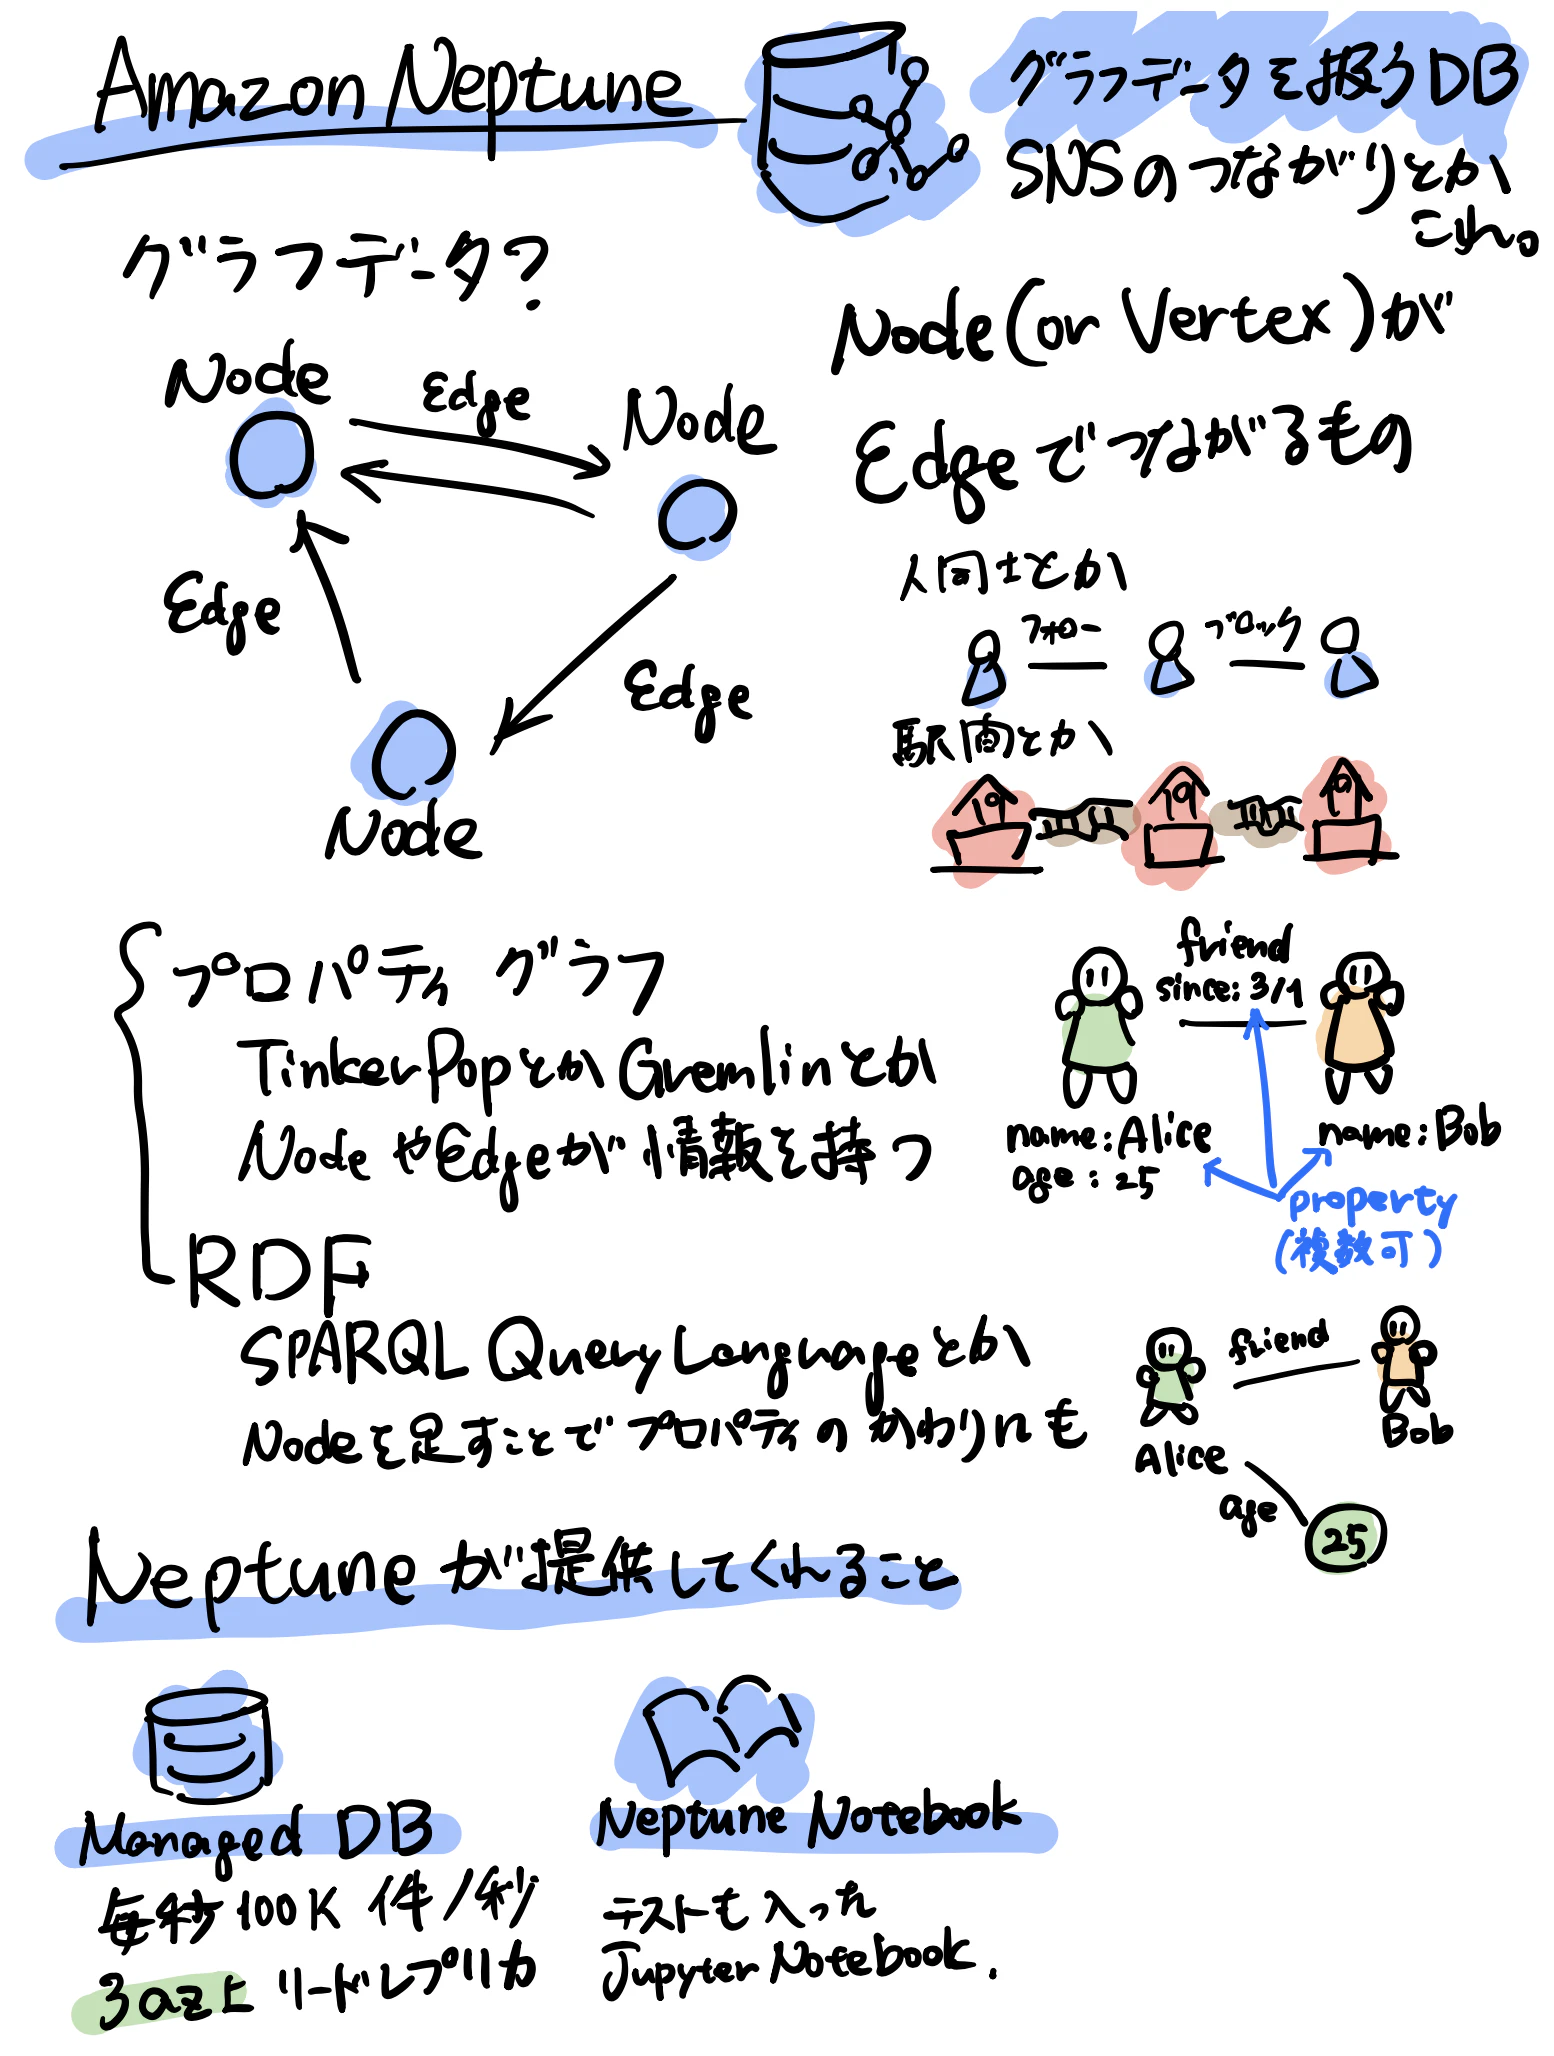 Amazon Neptune
グラフデータを扱うDB
SNSのつながりとか
これ。
グラフデータ?
Node
Edge
Node
Edge
Edge
Node
Node(or Vertex)が
Edgeでつながるもの
人同士とか
フォロー
ブロック
駅間とか
プロパティグラフ
TinkerPopとかGremlinとか
NodeやEdgeが情報を持つ
friend
since: 3/1
name: Alice
age: 25
name: Bob
property
(複数可)
RDF
SPARQL Query Languageとか
Nodeを足すことでプロパティのかわりにも
friend
Alice
Bob
age
25
Neptuneが提供してくれること
Managed DB
毎秒100K件/秒
3azに リードレプリカ
Neptune Notebook
テストも入った
Jupyter Notebook.